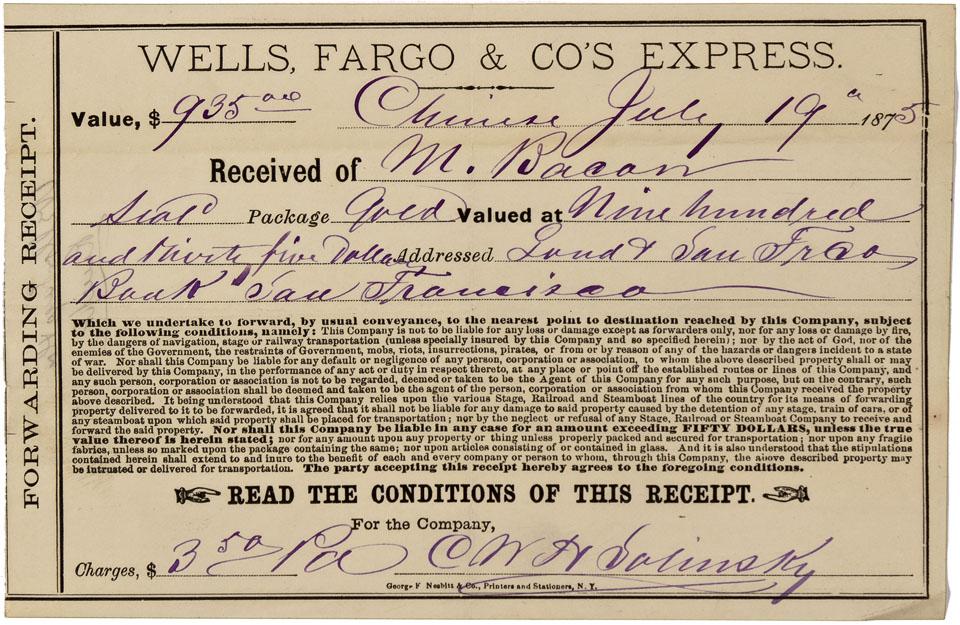 WELLS, FARGO & CO'S EXPRESS.
FORWARDING RECEIPT.
Value, $ 935 00 Chinese July 19 1875
Received of M. Bacon
Seal'd Package Gold Valued at Nine hundred
and thirty five Dollars Addressed Lond & San Frco
Bank San Francisco
Which we undertake to forward, by usual conveyance, to the nearest point to destination reached by this Company, subject
to the following conditions, namely: This Company is not to be liable for any loss or damage except as forwarders only, nor for any loss or damage by fire,
by the dangers of navigation, stage or railway transportation (unless specially insured by this Company and so specified herein); nor by the act of God, nor of the
enemies of the Government, the restraints of Government, mobs, riots, insurrections, pirates, or from or by reason of any of the hazards or dangers incident to a state
of war. Nor shall this Company be liable for any default or negligence of any person, corporation or association, to whom the above described property shall or may
be delivered by this Company, in the performance of any act or duty in respect thereto, at any place or point off the established routes or lines of this Company, and
any such person, corporation or association is not to be regarded, deemed or taken to be the Agent of this Company for any such purpose, but on the contrary, such
person, corporation or association shall be deemed and taken to be the agent of the person, corporation or association from whom this Company received the property
above described. It being understood that this Company relies upon the various Stage, Railroad and Steamboat lines of the country for its means of forwarding
property delivered to it to be forwarded, it is agreed that it shall not be liable for any damage to said property caused by the detention of any stage, train of cars, or of
any steamboat upon which said property shall be placed for transportation; nor by the neglect or refusal of any Stage, Railroad or Steamboat Company to receive and
forward the said property. Nor shall this Company be liable in any case for an amount exceeding FIFTY DOLLARS, unless the true
value thereof is herein stated; nor for any amount upon any property or thing unless properly packed and secured for transportation; nor upon any fragile
fabrics, unless so marked upon the package containing the same; nor upon articles consisting of or contained in glass. And it is also understood that the stipulations
contained herein shall extend to and inure to the benefit of each and every company or person to whom, through this Company, the above described property may
be intrusted or delivered for transportation. The party accepting this receipt hereby agrees to the foregoing conditions.
READ THE CONDITIONS OF THIS RECEIPT.
For the Company,
Charges, $ 3 50 Pd C W H Solinsky
George F Nesbitt & Co., Printers and Stationers, N. Y.